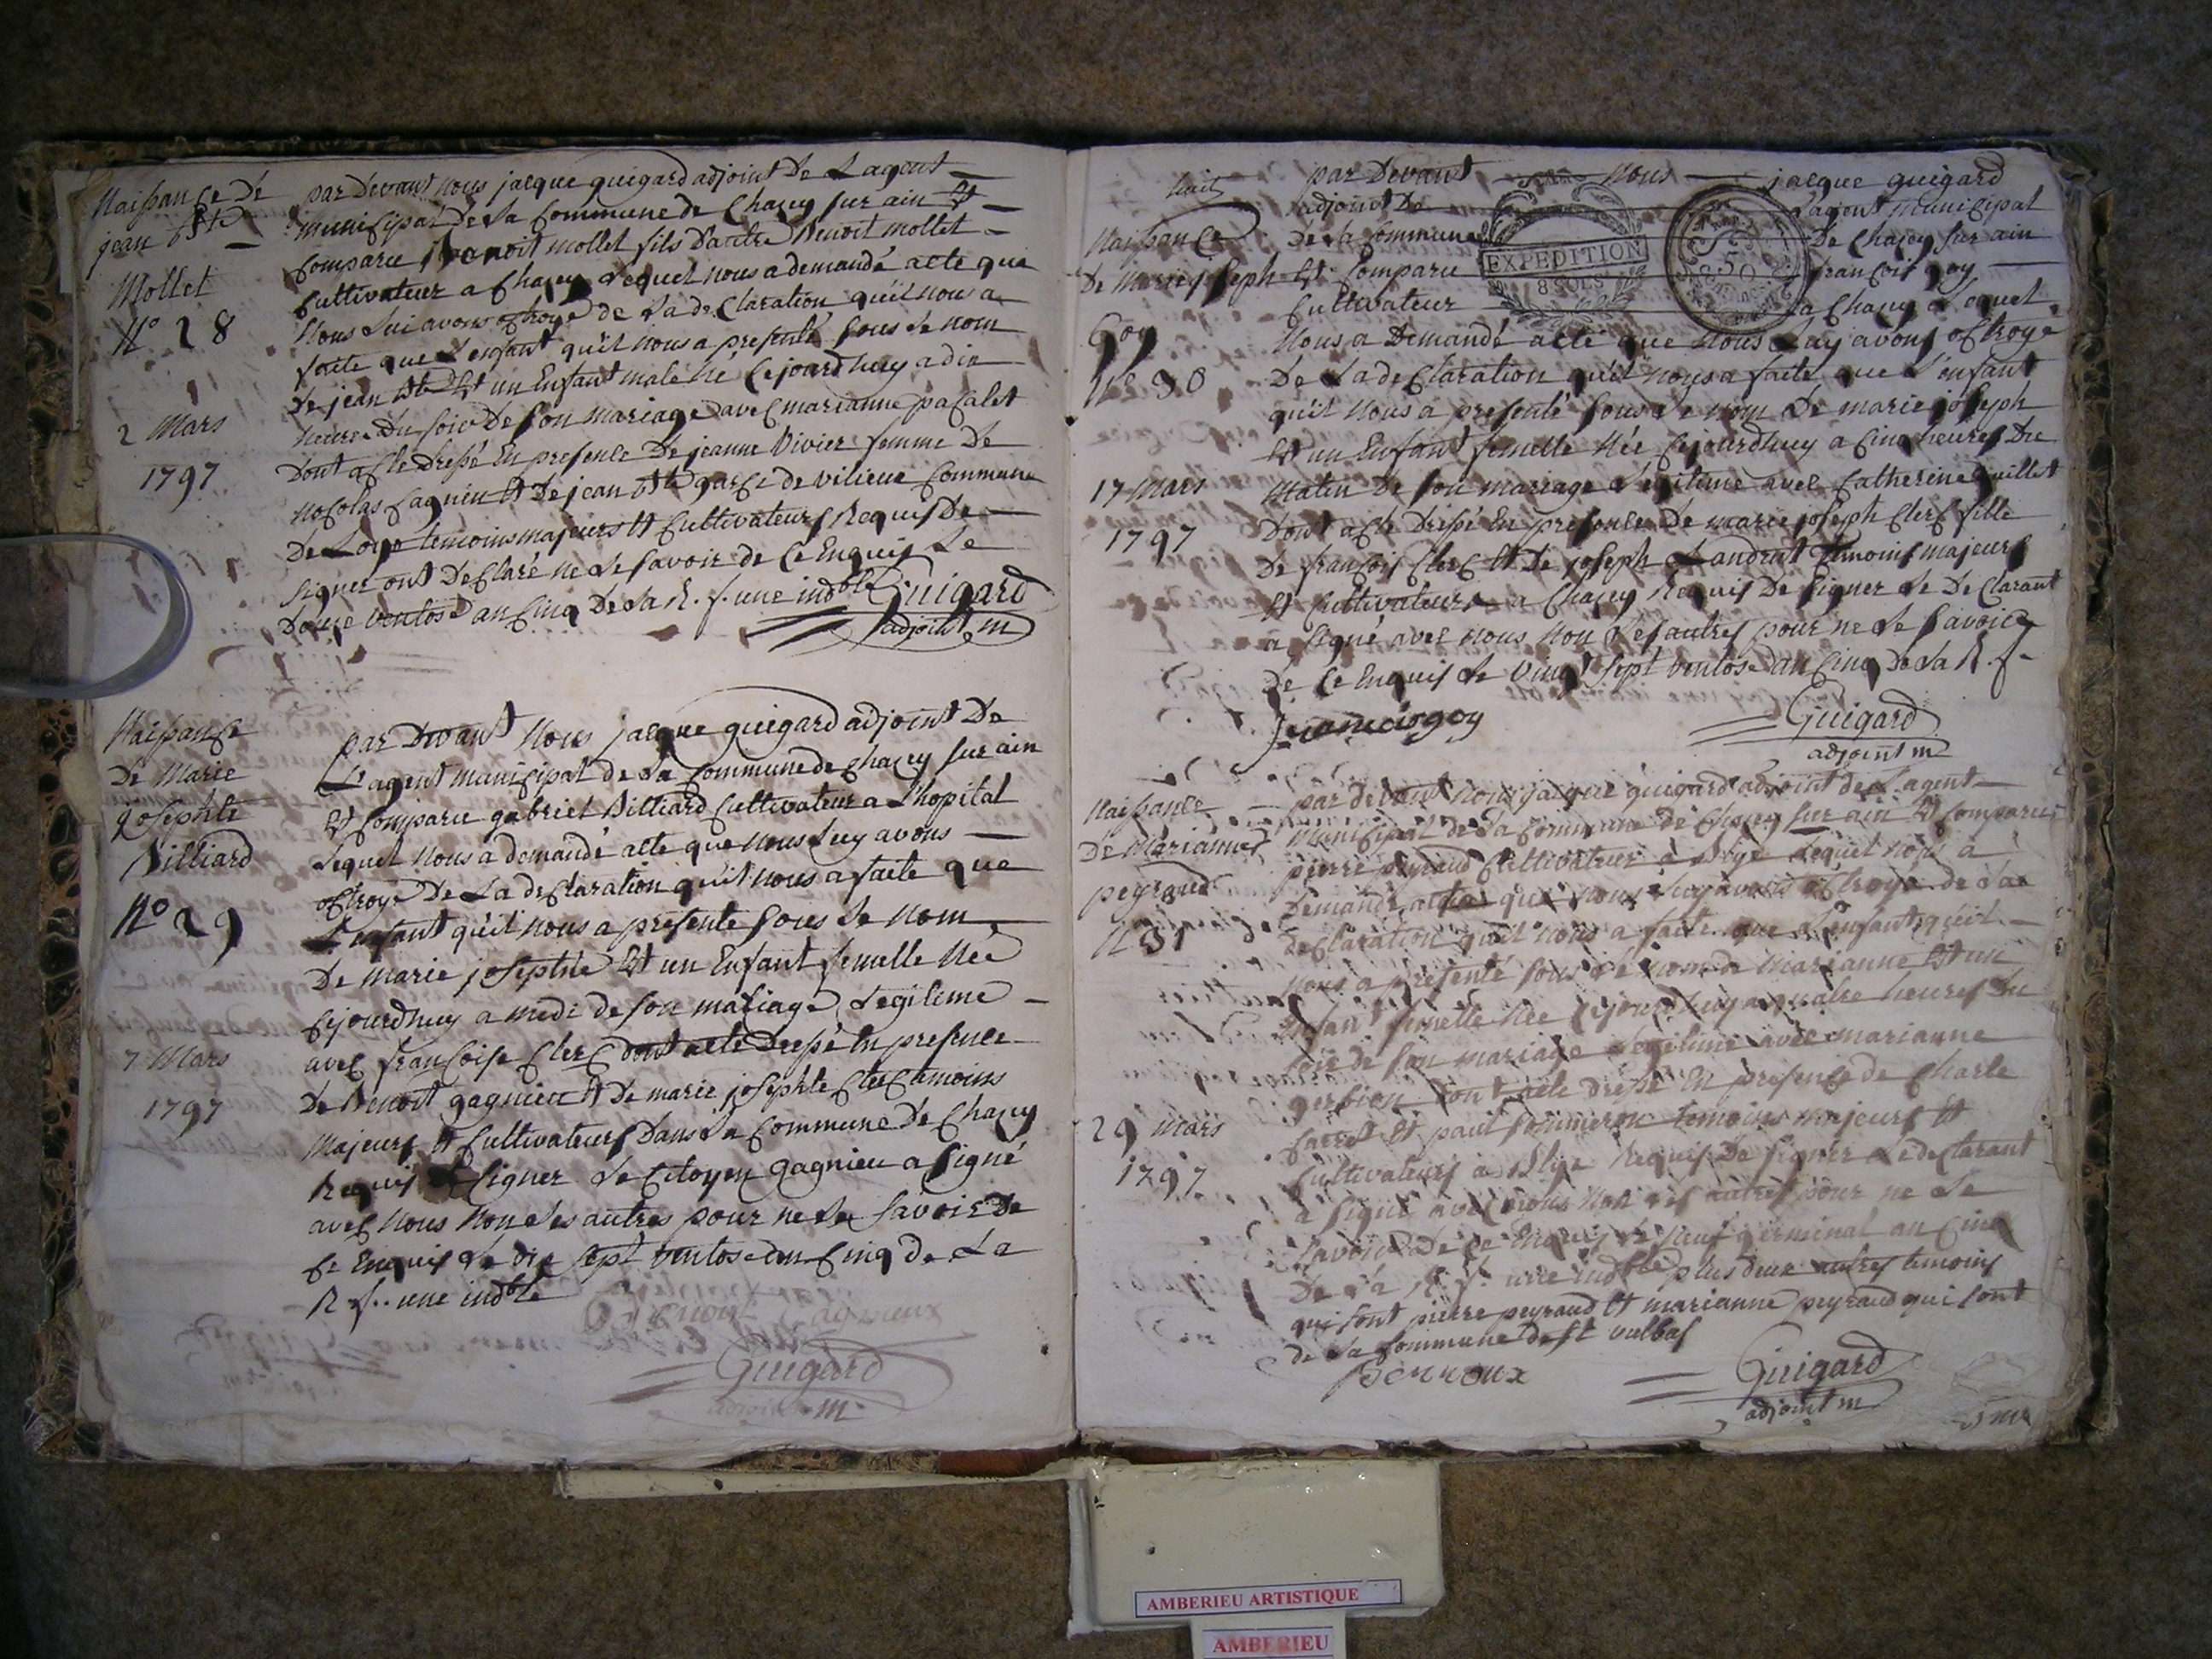 Naissance De
jean bste
Mollet
N° 28
2 Mars
1797
par Devant nous jacque guigard adjoint De Lagent
municipal De La Commune de Chazey sur ain Et
Comparu benoit mollet fils d'autre Benoit mollet
Cultivateur a Chazey Lequel nous a demandé acte que
Nous Lui avons octroyé de La declaration qu'il nous a
faite que L'enfant qu'il nous a presenté sous Le nom
De jean bte Est un Enfant male né Cejourdhuy a dix
heures Du soir De son mariage avec marianne pacalet
Dont acte Dressé En presence De jeanne Vivier femme De
nocolas Cagnin Et De jean bte garce de vilieue Commune
De Loye temoins majeurs Et Cultivateurs Requis De
signer ont Declaré ne Le savoir de Ce Enquis Le
Douze ventose an Cinq De La R. f. une indble Guigard
adjoint m
Naissance
De Marie
josephte
Billiard
N° 29
7 Mars
1797
par Devant Nous jacque guigard adjoint De
L'agent municipal de La Commune de Chazey sur ain
Et Comparu gabriel Billiard Cultivateur a L'hopital
Lequel Nous a demandé acte que nous Luy avons
octroyé De La declaration qu'il nous a faite que
L'enfant qu'il nous a presenté sous Le nom
De marie josephte Est un Enfant femelle Née
Cejourdhuy a midi de son mariage Legitime
avec francoise Clerc dont acte Dressé En presence
De Benoit gagnieu Et De marie josephte Clerc temoins
Majeurs Et Cultivateurs Dans La Commune De Chazey
Requis De signer Le Citoyen gagnieu a signé
avec Nous Non Les autres pour ne Le savoir De
Ce Enquis Le dix sept ventose an Cinq de La
R. f. une indble
Benoit Gagnieux
Guigard
adjoint m
Naissance
De Marie joseph
Goy
N° 30
17 Mars
1797
par Devant Nous jacque guigard
adjoint De Lagent Municipal
De La Commune De Chazey sur ain
Est Comparu francois goy
Cultivateur a Chazey Lequel
EXPEDITION
8 SOLS
50
Nous a Demandé acte que Nous Luy avons octroyé
De La declaration qu'il nous a faite que L'enfant
qu'il nous a presenté sous Le nom De marie joseph
Est un Enfant femelle Née Cejourdhuy a Cinq heures Du
Matin De son mariage Legitime avec Catherine guillet
Dont acte Dressé En presence De marie joseph Clerc fille
De francois Clerc Et De joseph Landrat temoins majeurs
Et Cultivateurs a Chazey Requis De signer Le De Clarant
a signé avec nous Non Les autres pour ne Le savoir
De Ce Enquis Le vingt sept ventose an Cinq De La R. f.
francois goy
Guigard
adjoint m
Naissance
De Marianne
peyraud
N 31
29 Mars
1797
par devant Nous jacque guigard adjoint de L'agent
Municipal de La Commune de Chazey sur ain Et Comparu
pierre peyraud Cultivateur a Blye Lequel nous a
Demandé acte que nous Luy avons octroyé de La
declaration qu'il nous a faite que L'enfant qu'il
nous a presenté sous Le nom de Marianne Est un
Enfant femelle Née Cejourdhuy a quatre heures Du
soir de son mariage Legitime avec marianne
dont acte dressé En presence de Charle
Et paul temoins majeurs Et
Cultivateurs a Blye Requis De signer Le declarant
a signé avec nous Non Les autres pour ne Le
savoir De Ce Enquis Le neuf germinal an Cinq
De La R. f. une indble plus deux autres temoins
qui sont pierre peyraud Et marianne peyraud qui sont
de La Commune de st vulbas
Guigard
adjoint m
AMBERIEU ARTISTIQUE
AMBERIEU